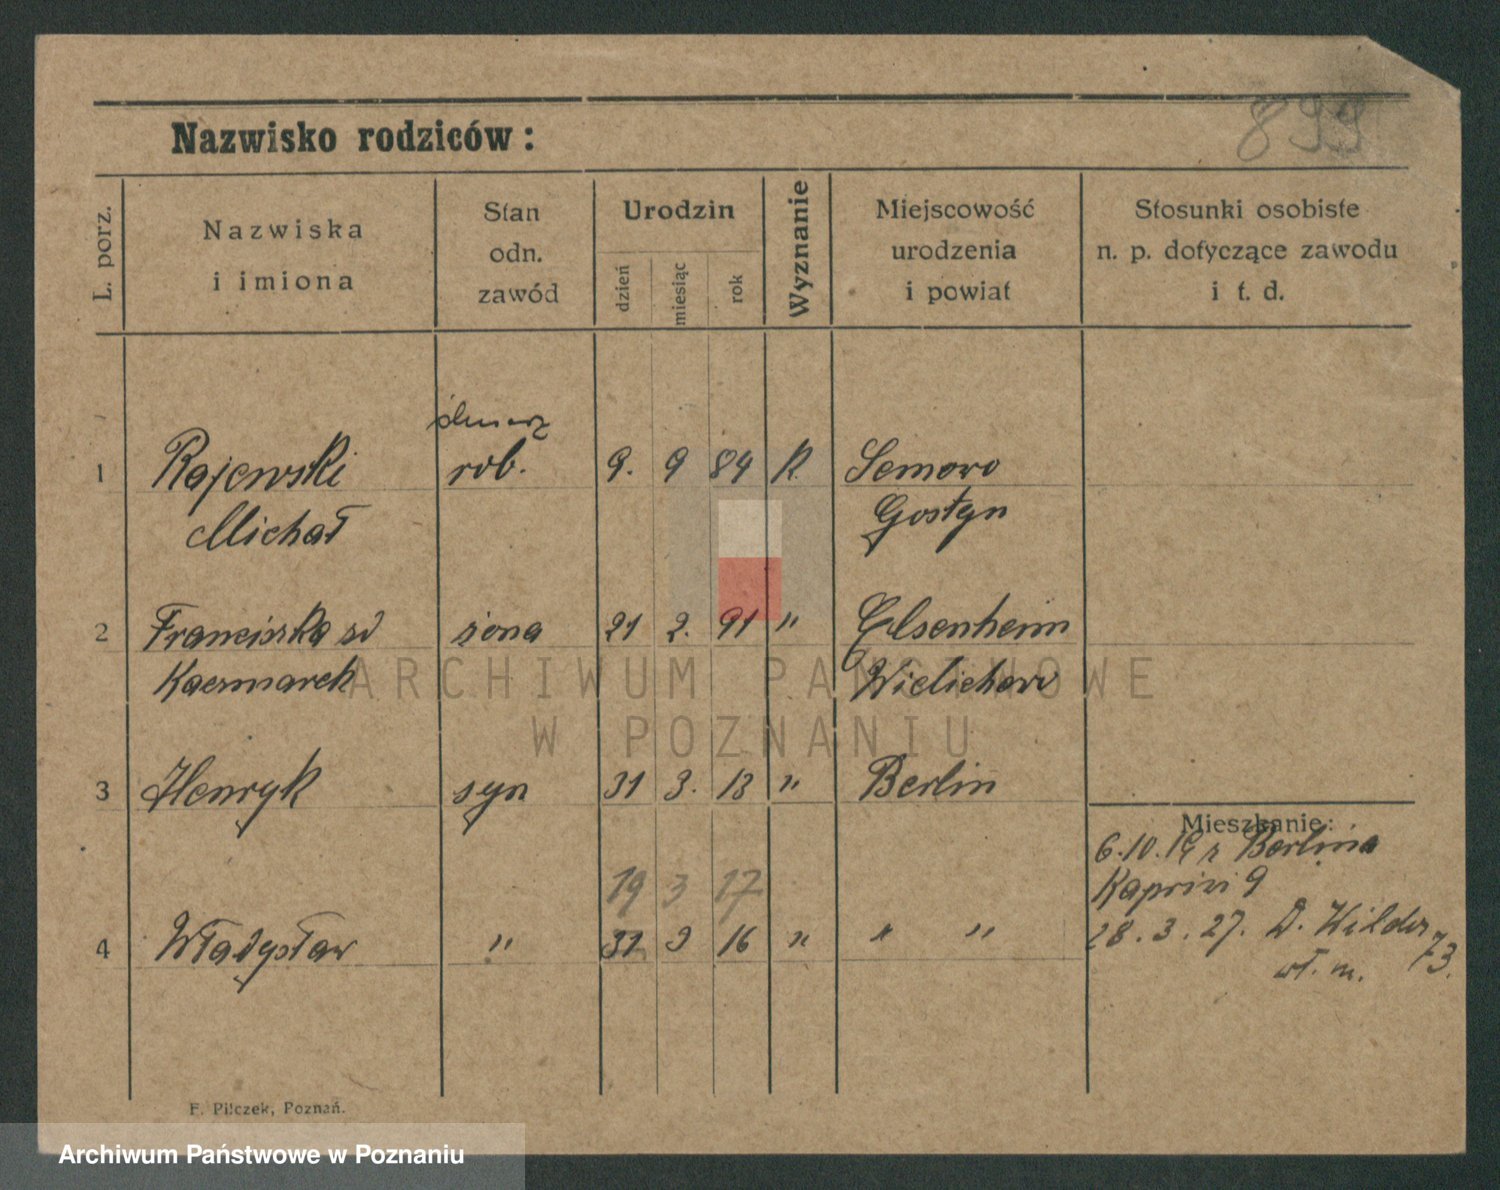 899
Nazwisko rodziców:
L. porz.
Nazwiska
i imiona
Stan
odn.
zawód
Urodzin
dzień
miesiąc
rok
Wyznanie
Miejscowość
urodzenia
i powiat
Stosunki osobiste
n. p. dotyczące zawodu
i t. d.
1 Rajewski rob. 9. 9 84 K. Semowo
Michał Gostyn
2 Franciszka zd żona 21 2. 91 " Elsenheim
Kaczmarek Wielichowo
ARCHIWUM PAŃSTWOWE
W POZNANIU
3 Henryk syn 31 3. 13 " Berlin
Mieszkanie:
6.10.19 z Berlina
19 3 17
Kaprivi 9
4 Władysław " 31 3 16 " " "
28.3.27. D. Wilda 73.
wł. m.
F. Pilczek, Poznań.
Archiwum Państwowe w Poznaniu